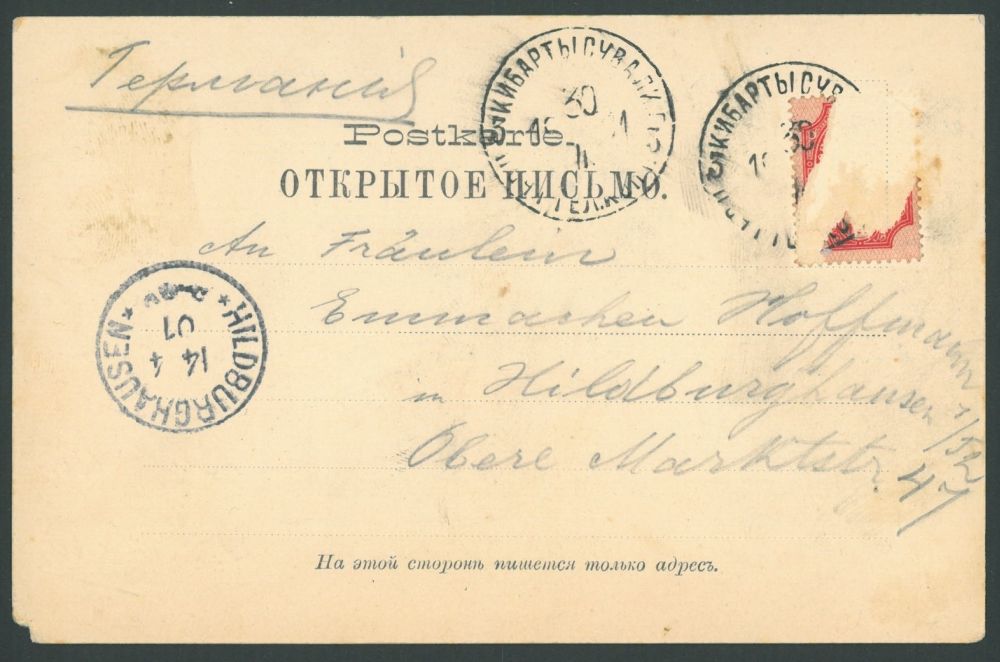 Германія
КИБАРТЫ СУВАЛ
30
КИБАРТЫ СУВ
30
Postkarte.
ОТКРЫТОЕ ПИСЬМО.
An Fräulein
Emmachen Hoffmann
in Hildburghausen
Obere Marktstr.
47
HILDBURGHAUSEN
14 4
01
На этой сторонѣ пишется только адресъ.